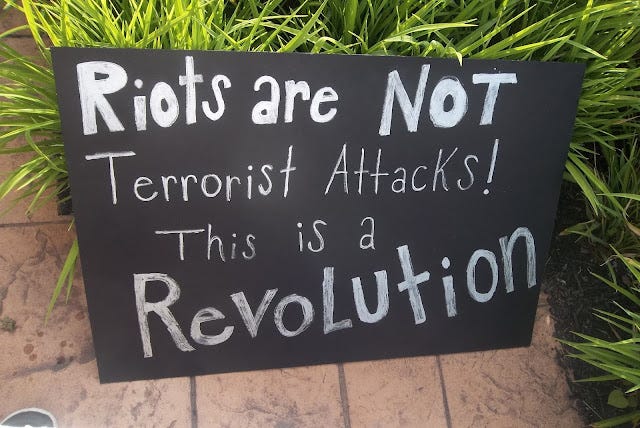 Riots are NOT
Terrorist Attacks!
This is a
Revolution